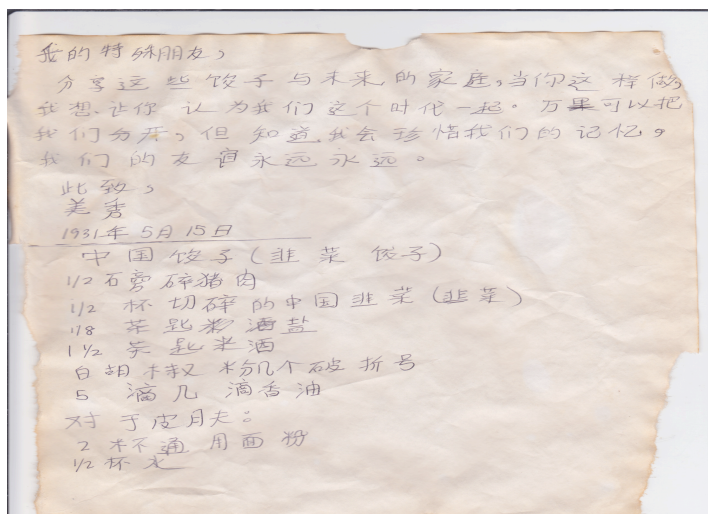 我的特殊朋友,
分享这些饺子与未来的家庭,当你这样做,
我想让你认为我们这个时代一起。万里可以把
我们分开,但知道我会珍惜我们的记忆,
我们的友谊永远永远。
此致,
美秀
1931年5月15日
中国饺子(韭菜饺子)
1/2石膏碎猪肉
1/2 杯切碎的中国韭菜(韭菜)
1/8 茶匙盐
1 1/2 茶匙米酒
白胡椒粉几个破折号
5 滴几滴香油
对于皮肤:
2 杯通用面粉
1/2 杯水